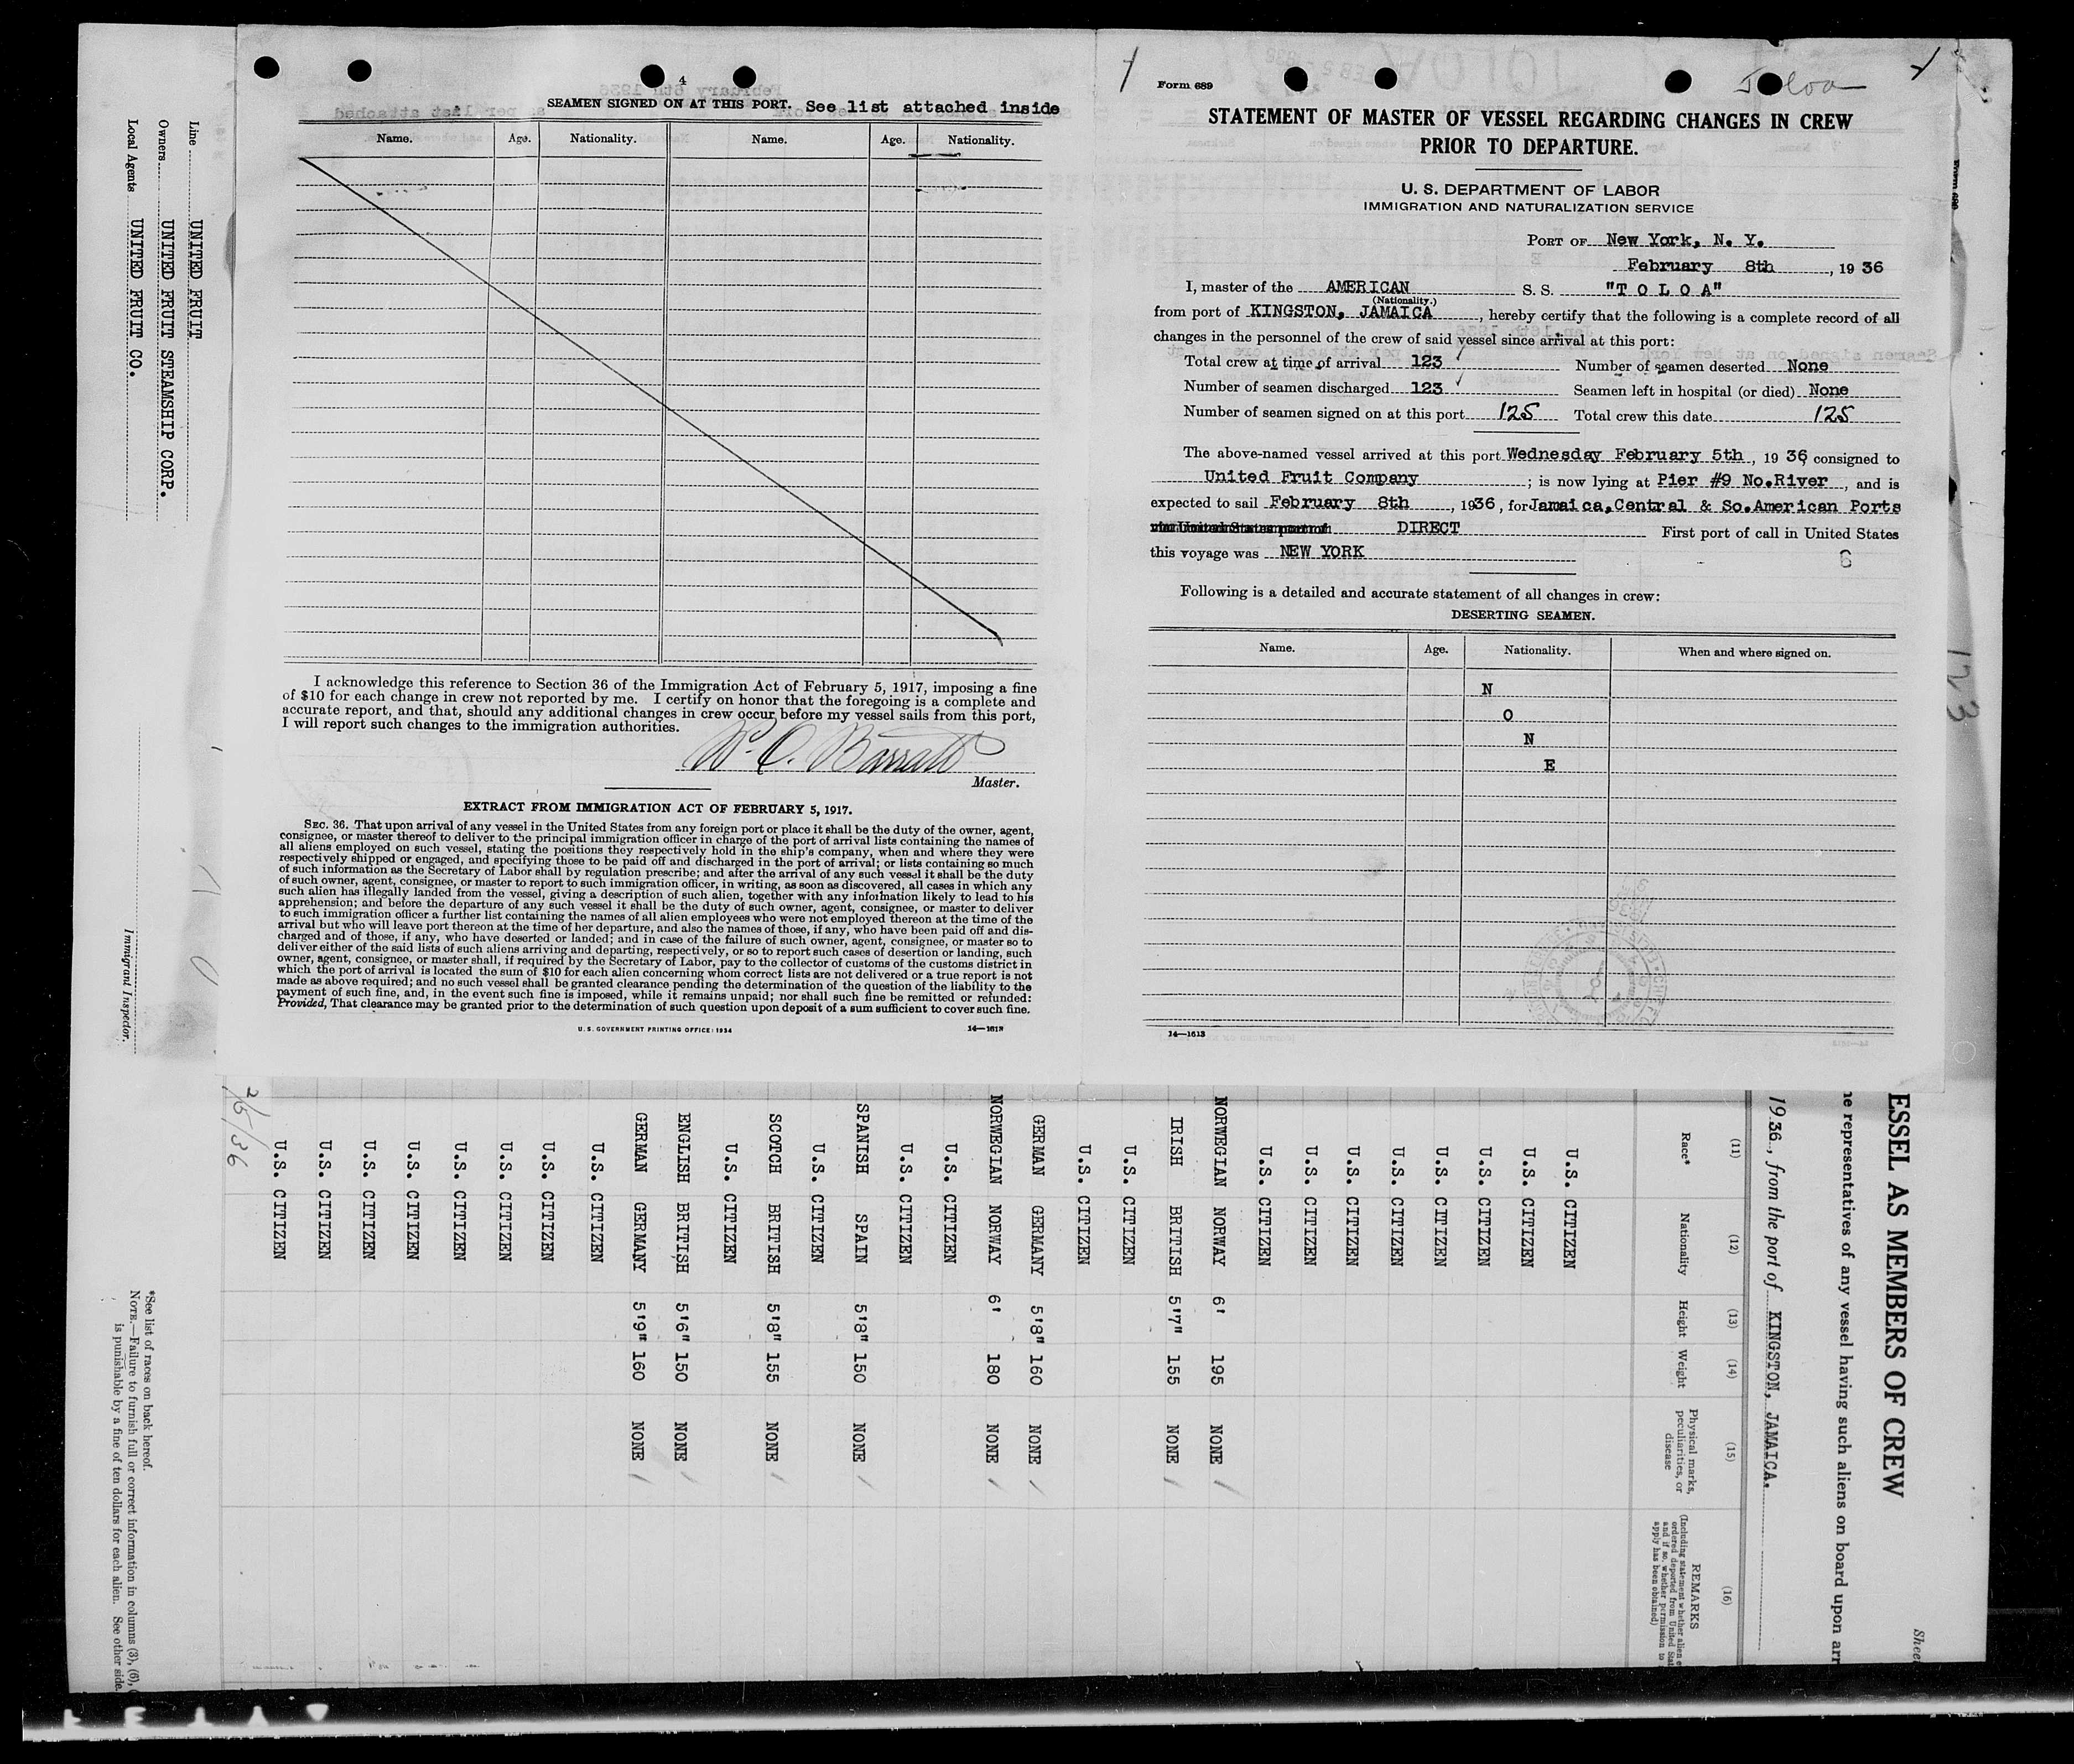 4
SEAMEN SIGNED ON AT THIS PORT. See list attached inside
Name. Age. Nationality. Name. Age. Nationality.
I acknowledge this reference to Section 36 of the Immigration Act of February 5, 1917, imposing a fine
of $10 for each change in crew not reported by me. I certify on honor that the foregoing is a complete and
accurate report, and that, should any additional changes in crew occur before my vessel sails from this port,
I will report such changes to the immigration authorities.
Master.
EXTRACT FROM IMMIGRATION ACT OF FEBRUARY 5, 1917.
SEC. 36. That upon arrival of any vessel in the United States from any foreign port or place it shall be the duty of the owner, agent,
consignee, or master thereof to deliver to the principal immigration officer in charge of the port of arrival lists containing the names of
all aliens employed on such vessel, stating the positions they respectively hold in the ship's company, when and where they were
respectively shipped or engaged, and specifying those to be paid off and discharged in the port of arrival; or lists containing so much
of such information as the Secretary of Labor shall by regulation prescribe; and after the arrival of any such vessel it shall be the duty
of such owner, agent, consignee, or master to report to such immigration officer, in writing, as soon as discovered, all cases in which any
such alien has illegally landed from the vessel, giving a description of such alien, together with any information likely to lead to his
apprehension; and before the departure of any such vessel it shall be the duty of such owner, agent, consignee, or master to deliver
to such immigration officer a further list containing the names of all alien employees who were not employed thereon at the time of the
arrival but who will leave port thereon at the time of her departure, and also the names of those, if any, who have been paid off and dis-
charged and of those, if any, who have deserted or landed; and in case of the failure of such owner, agent, consignee, or master so to
deliver either of the said lists of such aliens arriving and departing, respectively, or so to report such cases of desertion or landing, such
owner, agent, consignee, or master shall, if required by the Secretary of Labor, pay to the collector of customs of the customs district in
which the port of arrival is located the sum of $10 for each alien concerning whom correct lists are not delivered or a true report is not
made as above required; and no such vessel shall be granted clearance pending the determination of the question of the liability to the
payment of such fine, and, in the event such fine is imposed, while it remains unpaid; nor shall such fine be remitted or refunded:
Provided, That clearance may be granted prior to the determination of such question upon deposit of a sum sufficient to cover such fine.
U. S. GOVERNMENT PRINTING OFFICE: 1934 14—1613
Form 689
Toloa
STATEMENT OF MASTER OF VESSEL REGARDING CHANGES IN CREW
PRIOR TO DEPARTURE.
U. S. DEPARTMENT OF LABOR
IMMIGRATION AND NATURALIZATION SERVICE
PORT OF New York, N. Y.
February 8th, 1936
I, master of the AMERICAN S. S. "T O L O A"
(Nationality.)
from port of KINGSTON, JAMAICA, hereby certify that the following is a complete record of all
changes in the personnel of the crew of said vessel since arrival at this port:
Total crew at time of arrival 123 Number of seamen deserted None
Number of seamen discharged 123 Seamen left in hospital (or died) None
Number of seamen signed on at this port 125 Total crew this date 125
The above-named vessel arrived at this port Wednesday February 5th, 1936, consigned to
United Fruit Company; is now lying at Pier #9 No.River, and is
expected to sail February 8th, 1936, for Jamaica,Central & So.American Ports
DIRECT First port of call in United States
this voyage was NEW YORK
6
Following is a detailed and accurate statement of all changes in crew:
DESERTING SEAMEN.
Name. Age. Nationality. When and where signed on.
N
O
N
E
14—1613
123
Line UNITED FRUIT
Owners UNITED FRUIT STEAMSHIP CORP.
Local Agents UNITED FRUIT CO.
Immigrant Inspector.
Form 689
ESSEL AS MEMBERS OF CREW
Shee
he representatives of any vessel having such aliens on board upon arr
1936, from the port of KINGSTON, JAMAICA.
(11) (12) (13) (14) (15) (16)
Race* Nationality Height Weight Physical marks, peculiarities, or disease REMARKS
U.S. CITIZEN
U.S. CITIZEN
U.S. CITIZEN
U.S. CITIZEN
U.S. CITIZEN
U.S. CITIZEN
U.S. CITIZEN
U.S. CITIZEN
NORWEGIAN NORWAY 6' 195 NONE
IRISH BRITISH 5'7" 155 NONE
U.S. CITIZEN
U.S. CITIZEN
GERMAN GERMANY 5'8" 160 NONE
NORWEGIAN NORWAY 6' 180 NONE
U.S. CITIZEN
U.S. CITIZEN
SPANISH SPAIN 5'8" 150 NONE
U.S. CITIZEN
SCOTCH BRITISH 5'8" 155 NONE
U.S. CITIZEN
ENGLISH BRITISH 5'6" 150 NONE
GERMAN GERMANY 5'9" 160 NONE
U.S. CITIZEN
U.S. CITIZEN
U.S. CITIZEN
U.S. CITIZEN
U.S. CITIZEN
U.S. CITIZEN
U.S. CITIZEN
U.S. CITIZEN
2/5/36
*See list of races on back hereof.
NOTE.—Failure to furnish full or correct information in columns (3), (6),
is punishable by a fine of ten dollars for each alien. See other side.